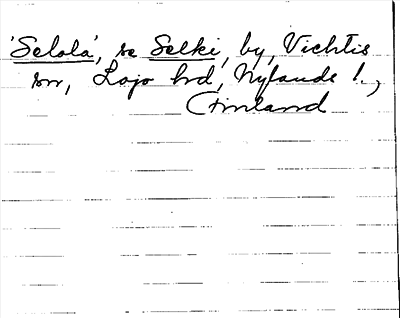 'Selola', se Selki, by, Vichtis
sn, Lojo hd, Nylands l.,
Finland